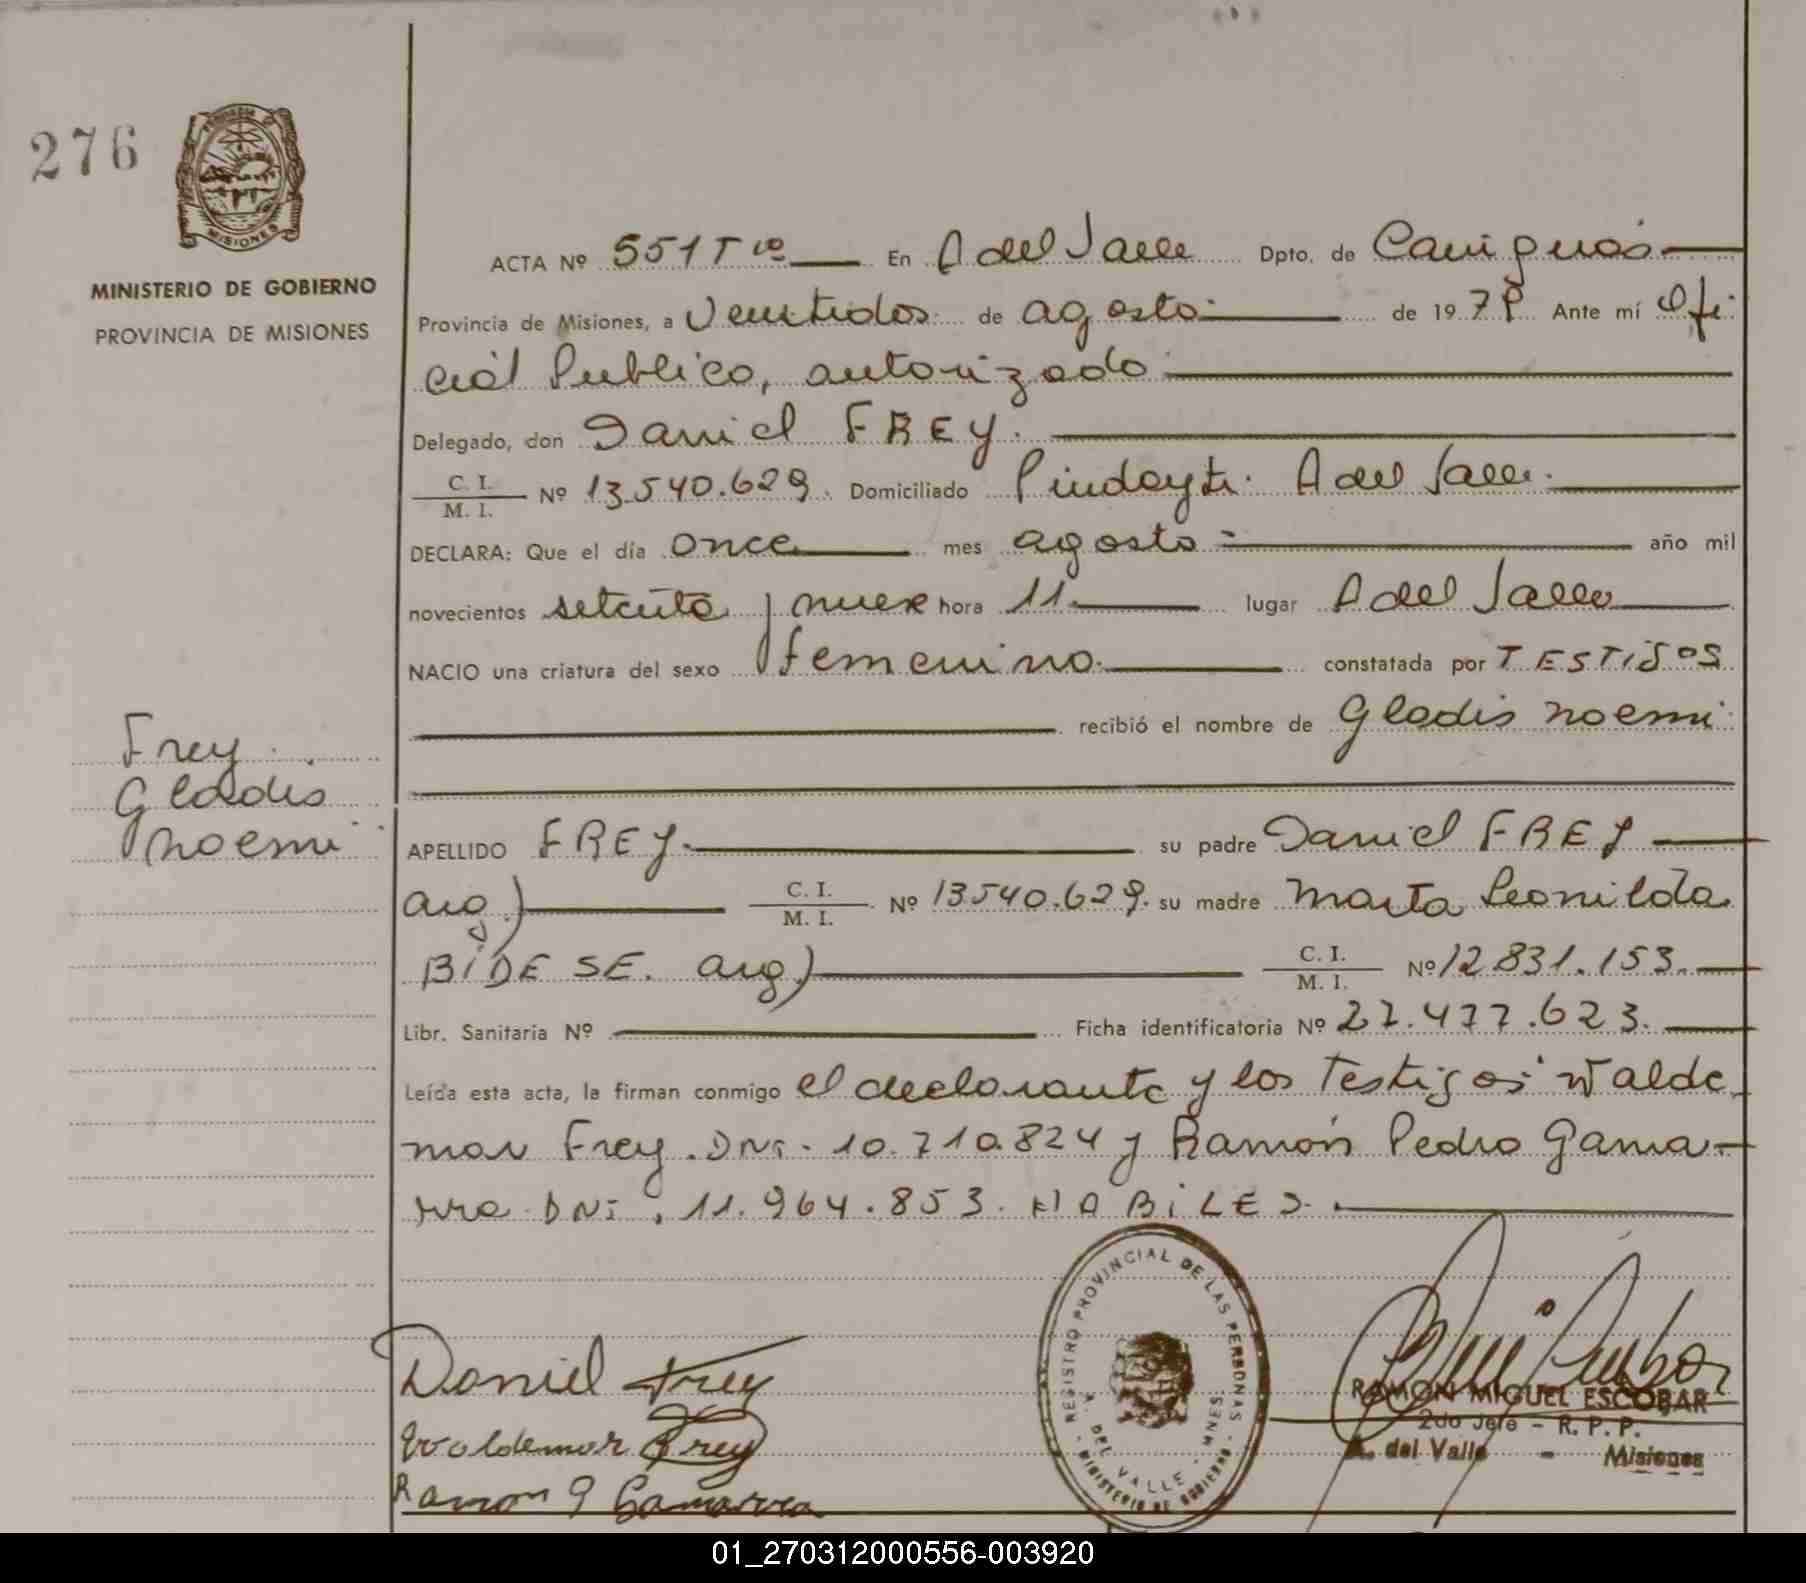 276
MISIONES
MINISTERIO DE GOBIERNO
PROVINCIA DE MISIONES
ACTA Nº 551 T En A del Valle Dpto. de Cainguás
Provincia de Misiones, a Veintidos de agosto de 1979 Ante mí Ofi
cial Publico, autorizado
Delegado, don Daniel FREY.
C. I. / M. I. Nº 13.540.629. Domiciliado Pindayti. A del Valle.
DECLARA: Que el día once mes agosto año mil
novecientos setenta y nueve hora 11 lugar A del Valle
NACIO una criatura del sexo femenino. constatada por TESTIGOS
recibió el nombre de Gladis Noemi
Frey
Gladis
Noemi
APELLIDO FREY. su padre Daniel FREY
arg.) C. I. / M. I. Nº 13.540.629. su madre Marta Leonilda
BIDE SE. arg) C. I. / M. I. Nº 12.831.153.
Libr. Sanitaria Nº Ficha identificatoria Nº 27.477.623.
Leída esta acta, la firman conmigo el declarante y los Testigos Walde
mar Frey. DNi. 10.710.824 y Ramón Pedro Gama-
rra DNi. 11.964.853. HABiLES.
Daniel Frey
Waldemar Frey
Ramon P Gamarra
REGISTRO PROVINCIAL DE LAS PERSONAS
A. DEL VALLE - MNES.
MINISTERIO DE GOBIERNO
RAMON MIGUEL ESCOBAR
2do Jefe - R. P. P.
A. del Valle - Misiones
01_270312000556-003920